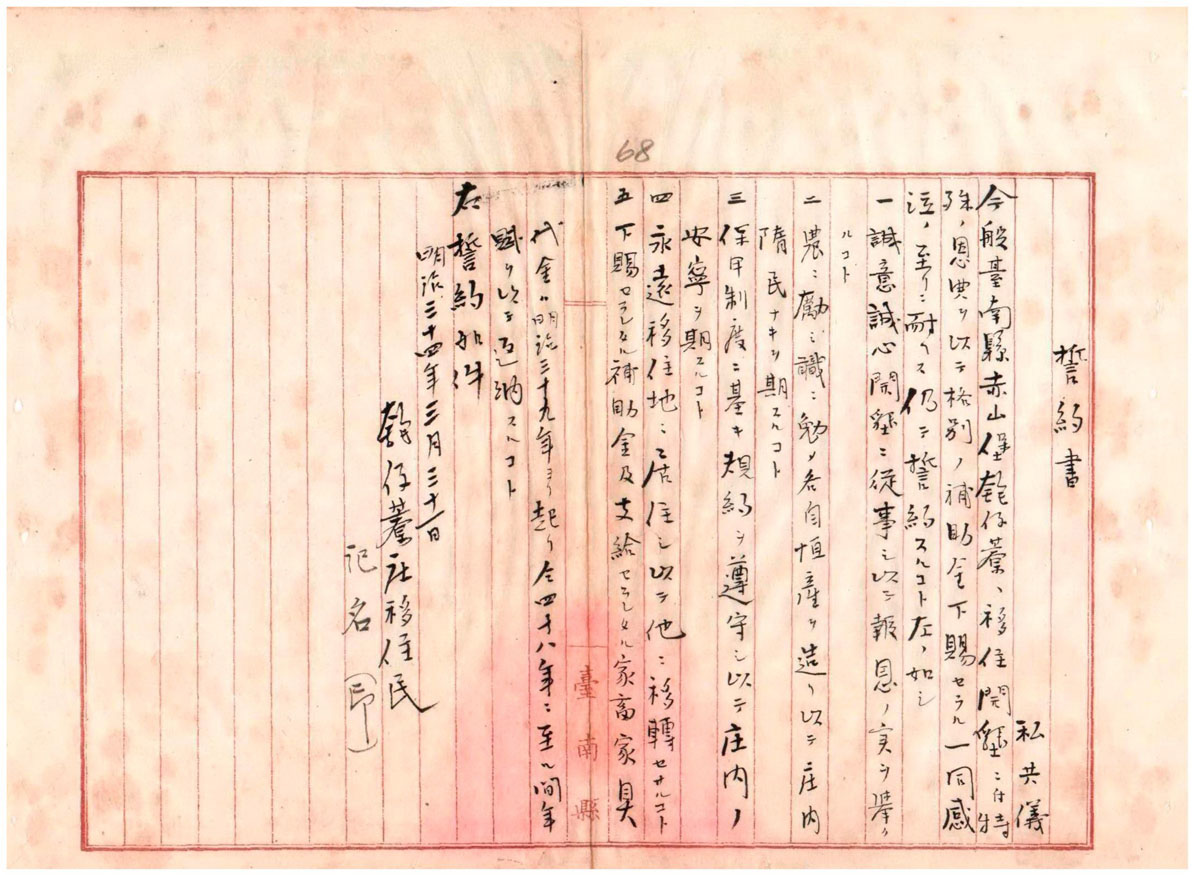 68
誓約書
私共儀
今般臺南縣赤山堡乾仔藔ヘ移住開墾ニ付特
殊ノ恩典ヲ以テ格別ノ補助金下賜セラル一同感
泣ノ至リニ耐ヘス仍テ誓約スルコト左ノ如シ
一誠意誠心開墾ニ從事シ以テ報恩ノ実ヲ挙ク
ルコト
二農ニ勵ミ職ニ勉メ各自恒産ヲ造リ以テ庄内
隋民ナキヲ期スルコト
三保甲制度ニ基キ規約ヲ遵守シ以テ庄内ノ
安寧ヲ期スルコト
四永遠移住地ニ居住シ以テ他ニ移轉セサルコト
五下賜セラレタル補助金及支給セラレタル家畜家具
代金ハ明治三十九年ヨリ起リ仝四十八年ニ至ル間年
賦ヲ以テ返納スルコト
右誓約如件
明治三十四年三月三十一日
仔藔庄移住民
記名印
臺南縣